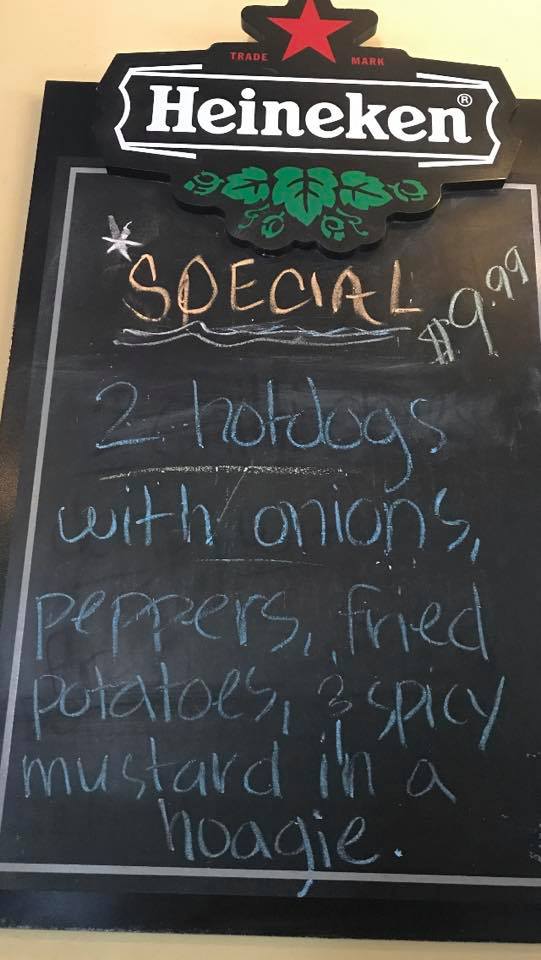 TRADE MARK
Heineken®
*SPECIAL
$9.99
2 hotdogs
with onions,
peppers, fried
potatoes, & spicy
mustard in a
hoagie.